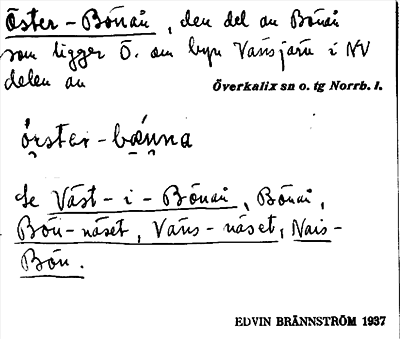 Öster-Bönån, den del av Bönån
som ligger Ö. om byn Vänsjärv i NV
delen av Överkalix sn o. tg Norrb. l.
Se Väst-i-Bönån, Bönån,
Bön-näset, Väns-näset, Nais-
Bön.
EDVIN BRÄNNSTRÖM 1937